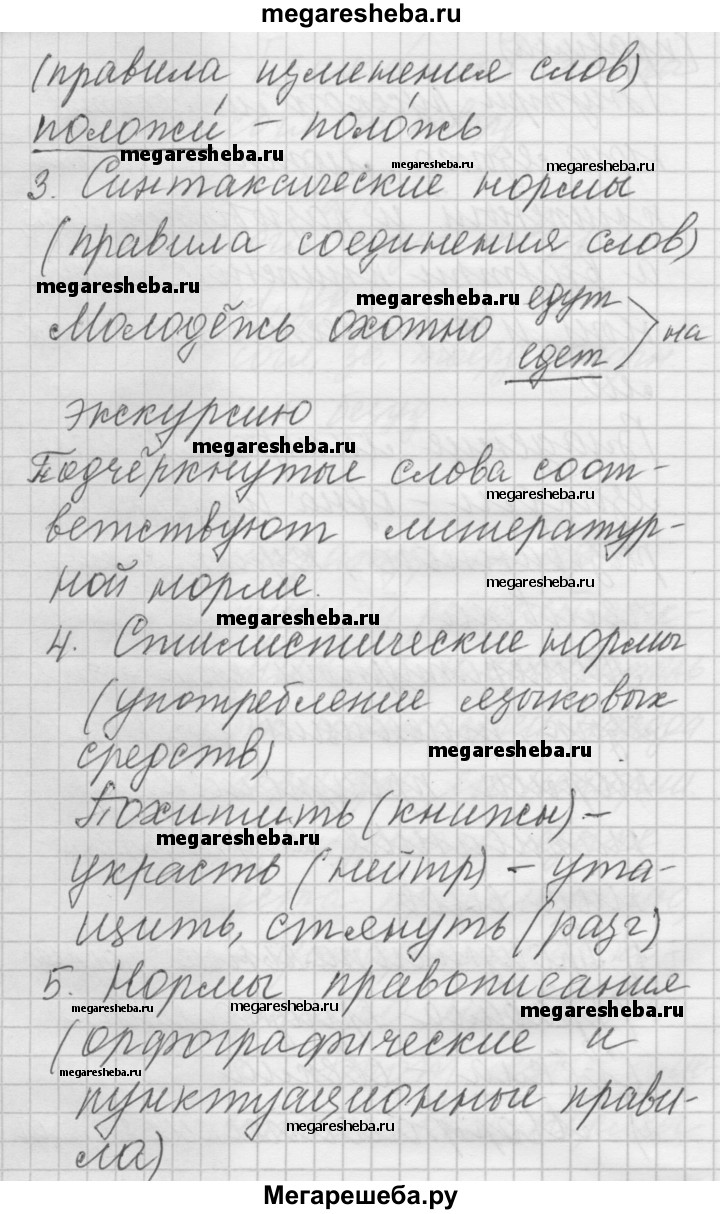 megaresheba.ru
(правила изменения слов)
положи́ – поло́жь
megaresheba.ru
megaresheba.ru
megaresheba.ru
3. Синтаксические нормы
(правила соединения слов)
megaresheba.ru
megaresheba.ru
едут
Молодёжь охотно
на
едет
экскурсию
megaresheba.ru
Подчёркнутые слова соот-
megaresheba.ru
ветствуют литератур-
ной норме.
megaresheba.ru
megaresheba.ru
4. Стилистические нормы
(употребление языковых
средств)
megaresheba.ru
Похитить (книжн) –
megaresheba.ru
украсть (нейтр) – ута-
щить, стянуть (разг)
5. Нормы правописания
megaresheba.ru
megaresheba.ru
megaresheba.ru
(орфографические и
megaresheba.ru
пунктуационные прави-
megaresheba.ru
ла)
Мегарешеба.ру